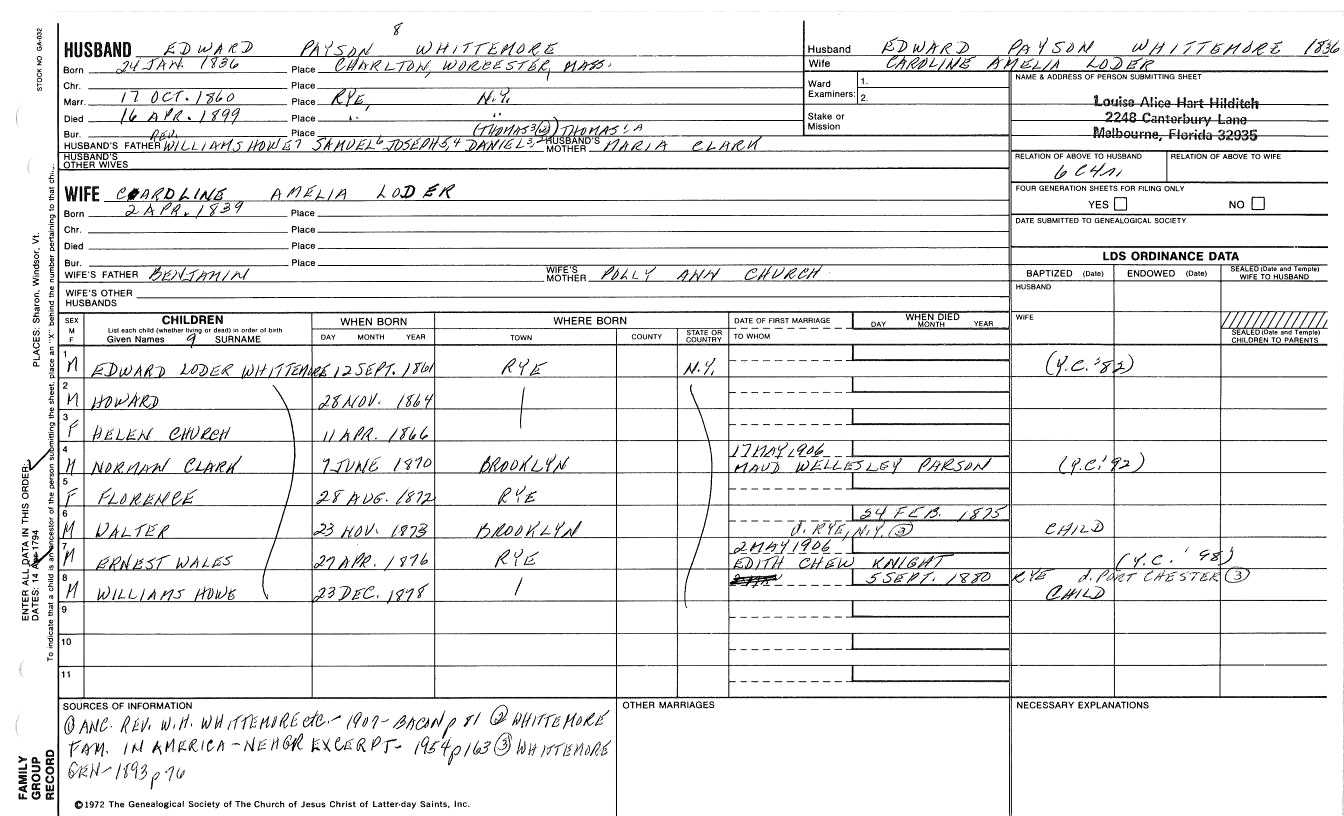 STOCK NO. GA-032
8
HUSBAND EDWARD PAYSON WHITTEMORE
Born 24 JAN. 1836 Place CHARLTON, WORCESTER, MASS.
Chr. Place
Marr. 17 OCT. 1860 Place RYE, N.Y.
Died 16 APR. 1899 Place " "
Bur. Place
REV. (THOMAS3(2)) THOMAS1 A
HUSBAND'S FATHER WILLIAMS HOWE7 SAMUEL6 JOSEPH5,4 DANIEL3,2 HUSBAND'S MOTHER MARIA CLARK
HUSBAND'S OTHER WIVES
Husband EDWARD PAYSON WHITTEMORE 1836
Wife CAROLINE AMELIA LODER
Ward Examiners: 1.
2.
Stake or Mission
NAME & ADDRESS OF PERSON SUBMITTING SHEET
Louise Alice Hart Hilditch
2248 Canterbury Lane
Melbourne, Florida 32935
RELATION OF ABOVE TO HUSBAND RELATION OF ABOVE TO WIFE
6C4r.
FOUR GENERATION SHEETS FOR FILING ONLY
YES NO
DATE SUBMITTED TO GENEALOGICAL SOCIETY
WIFE CAROLINE AMELIA LODER
Born 2 APR. 1839 Place
Chr. Place
Died Place
Bur. Place
WIFE'S FATHER BENJAMIN WIFE'S MOTHER POLLY ANN CHURCH
WIFE'S OTHER HUSBANDS
LDS ORDINANCE DATA
BAPTIZED (Date) ENDOWED (Date) SEALED (Date and Temple) WIFE TO HUSBAND
HUSBAND
WIFE
SEALED (Date and Temple) CHILDREN TO PARENTS
SEX M F
CHILDREN
List each child (whether living or dead) in order of birth
Given Names 9 SURNAME
WHEN BORN
DAY MONTH YEAR
WHERE BORN
TOWN COUNTY STATE OR COUNTRY
DATE OF FIRST MARRIAGE
TO WHOM
WHEN DIED
DAY MONTH YEAR
1 M EDWARD LODER WHITTEMORE 12 SEPT. 1861 RYE N.Y. (Y.C. '82)
2 M HOWARD 28 NOV. 1864
3 F HELEN CHURCH 11 APR. 1866
4 M NORMAN CLARK 7 JUNE 1870 BROOKLYN 17 MAY 1906 MAUD WELLESLEY PARSON (Y.C. '92)
5 F FLORENCE 28 AUG. 1872 RYE
6 M WALTER 23 NOV. 1873 BROOKLYN 24 FEB. 1875 d. RYE, N.Y. (3) CHILD
7 M ERNEST WALES 27 APR. 1876 RYE 2 MAY 1906 EDITH CHEW KNIGHT (Y.C. '98)
8 M WILLIAMS HOWE 23 DEC. 1878 5 SEPT. 1880 RYE d. PORT CHESTER (3) CHILD
9
10
11
SOURCES OF INFORMATION
(1) ANC. REV. W.H. WHITTEMORE etc. - 1907 - BACON p 81 (2) WHITTEMORE
FAM. IN AMERICA - NEHGR EXCERPT - 1954 p 163 (3) WHITTEMORE
GEN - 1893 p 76
OTHER MARRIAGES
NECESSARY EXPLANATIONS
©1972 The Genealogical Society of The Church of Jesus Christ of Latter-day Saints, Inc.
FAMILY GROUP RECORD
ENTER ALL DATA IN THIS ORDER:
DATES: 14 Apr 1794
PLACES: Sharon, Windsor, Vt.
To indicate that a child is an ancestor of the person submitting the sheet, place an "X" behind the number pertaining to that chi...